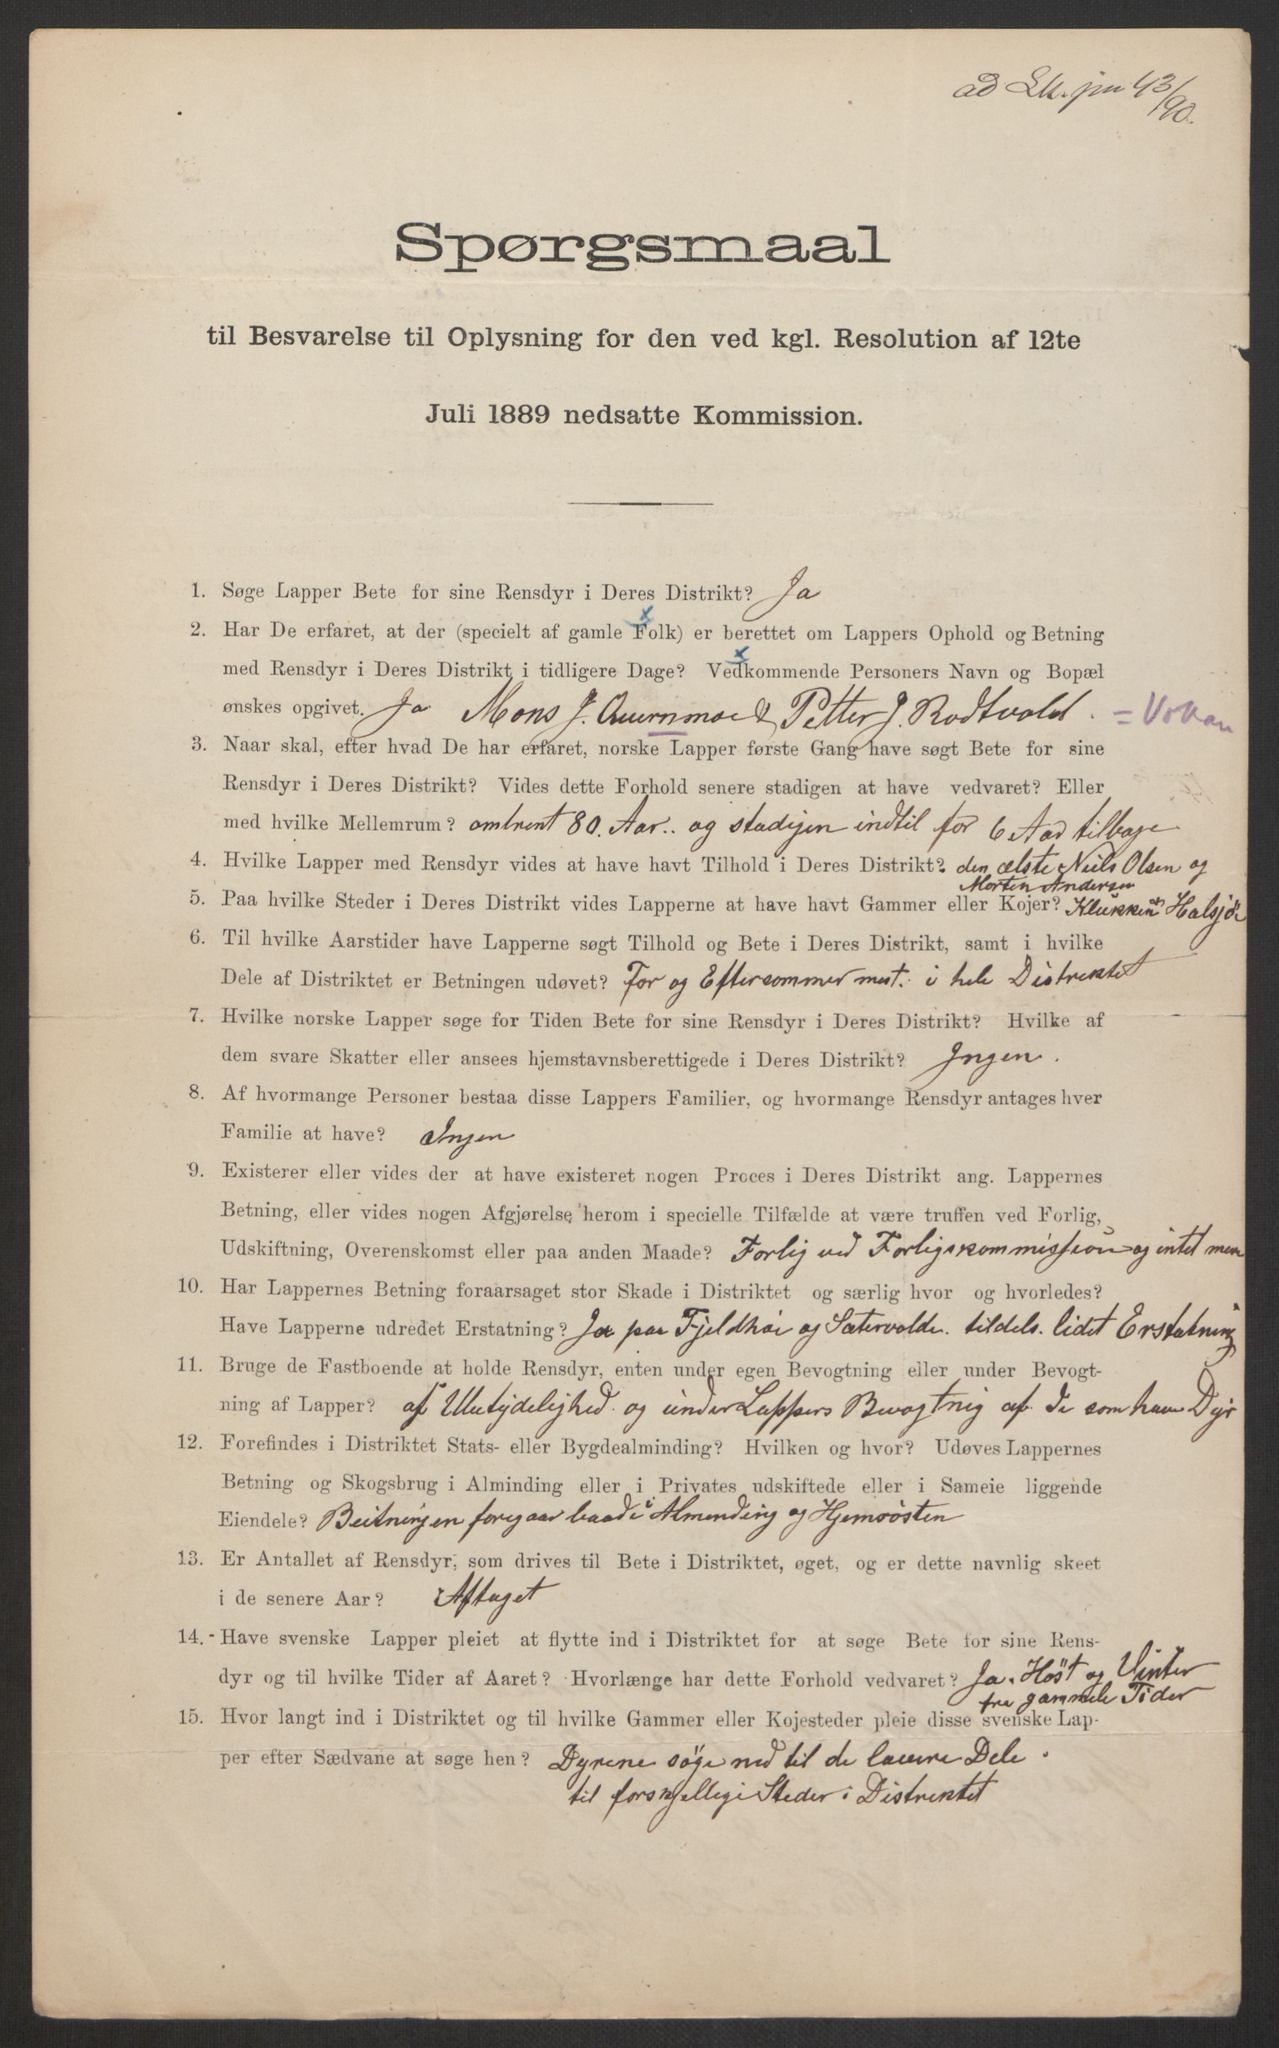 ad Lk. jnr 43/90.
Spørgsmaal
til Besvarelse til Oplysning for den ved kgl. Resolution af 12te
Juli 1889 nedsatte Kommission.
1. Søge Lapper Bete for sine Rensdyr i Deres Distrikt? Ja
2. Har De erfaret, at der (specielt af gamle Folk) er berettet om Lappers Ophold og Betning
med Rensdyr i Deres Distrikt i tidligere Dage? Vedkommende Personers Navn og Bopæl
ønskes opgivet. Ja Mons J. Quernmoe & Petter J. Rodtvold. =
3. Naar skal, efter hvad De har erfaret, norske Lapper første Gang have søgt Bete for sine
Rensdyr i Deres Distrikt? Vides dette Forhold senere stadigen at have vedvaret? Eller
med hvilke Mellemrum? omtrent 80. Aar.. og stadigen indtil for 6 Aar tilbage
4. Hvilke Lapper med Rensdyr vides at have havt Tilhold i Deres Distrikt? den ælste Niels Olsen og
Morten Andersen
5. Paa hvilke Steder i Deres Distrikt vides Lapperne at have havt Gammer eller Kojer? Klukken Halsjø
6. Til hvilke Aarstider have Lapperne søgt Tilhold og Bete i Deres Distrikt, samt i hvilke
Dele af Distriktet er Betningen udøvet? For og Eftersommer mest. i hele Distrektet
7. Hvilke norske Lapper søge for Tiden Bete for sine Rensdyr i Deres Distrikt? Hvilke af
dem svare Skatter eller ansees hjemstavnsberettigede i Deres Distrikt? Ingen.
8. Af hvormange Personer bestaa disse Lappers Familier, og hvormange Rensdyr antages hver
Familie at have? Ingen
9. Existerer eller vides der at have existeret nogen Proces i Deres Distrikt ang. Lappernes
Betning, eller vides nogen Afgjørelse herom i specielle Tilfælde at være truffen ved Forlig,
Udskiftning, Overenskomst eller paa anden Maade? Forlig ved Forligskommission og intet mere
10. Har Lappernes Betning foraarsaget stor Skade i Distriktet og særlig hvor og hvorledes?
Have Lapperne udredet Erstatning? Ja paa Fjeldhøi og Sætervolde. tildels. lidet Erstatning
11. Bruge de Fastboende at holde Rensdyr, enten under egen Bevogtning eller under Bevogt-
ning af Lapper? af Ubetydelighed og under Lappers Bevogtnig af de som have Dyr
12. Forefindes i Distriktet Stats- eller Bygdealminding? Hvilken og hvor? Udøves Lappernes
Betning og Skogsbrug i Alminding eller i Privates udskiftede eller i Sameie liggende
Eiendele? Beitningen foregaar baade i Almending og Hjemoösten
13. Er Antallet af Rensdyr, som drives til Bete i Distriktet, øget, og er dette navnlig skeet
i de senere Aar? Aftaget
14. Have svenske Lapper pleiet at flytte ind i Distriktet for at søge Bete for sine Rens-
dyr og til hvilke Tider af Aaret? Hvorlænge har dette Forhold vedvaret? Ja. Höst og Vinter
fra gammele Tider
15. Hvor langt ind i Distriktet og til hvilke Gammer eller Kojesteder pleie disse svenske Lap-
per efter Sædvane at søge hen? Dyrene söge ned til de lavere Dele.
til forskjellige Steder i Distrektet